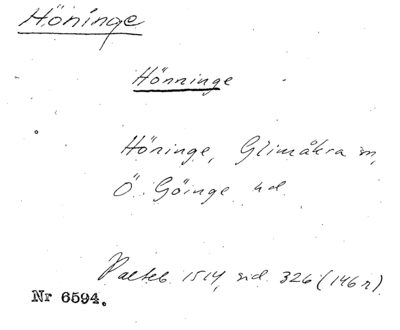 Höninge
Hönninge
Höninge, Glimåkra sn,
Ö. Göinge hd
Palteb. 1514, sid. 326 (146 r).
Nr 6594.